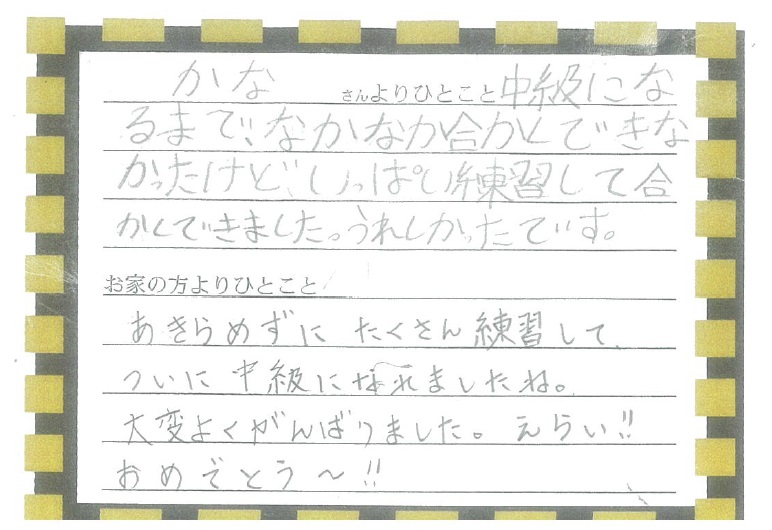 かな さんよりひとこと 中級にな
るまで、なかなか合かくできな
かったけど、いっぱい練習して合
かくできました。うれしかったです。
お家の方よりひとこと
あきらめずに たくさん練習して、
ついに 中級になれましたね。
大変よくがんばりました。えらい!!
おめでとう〜!!